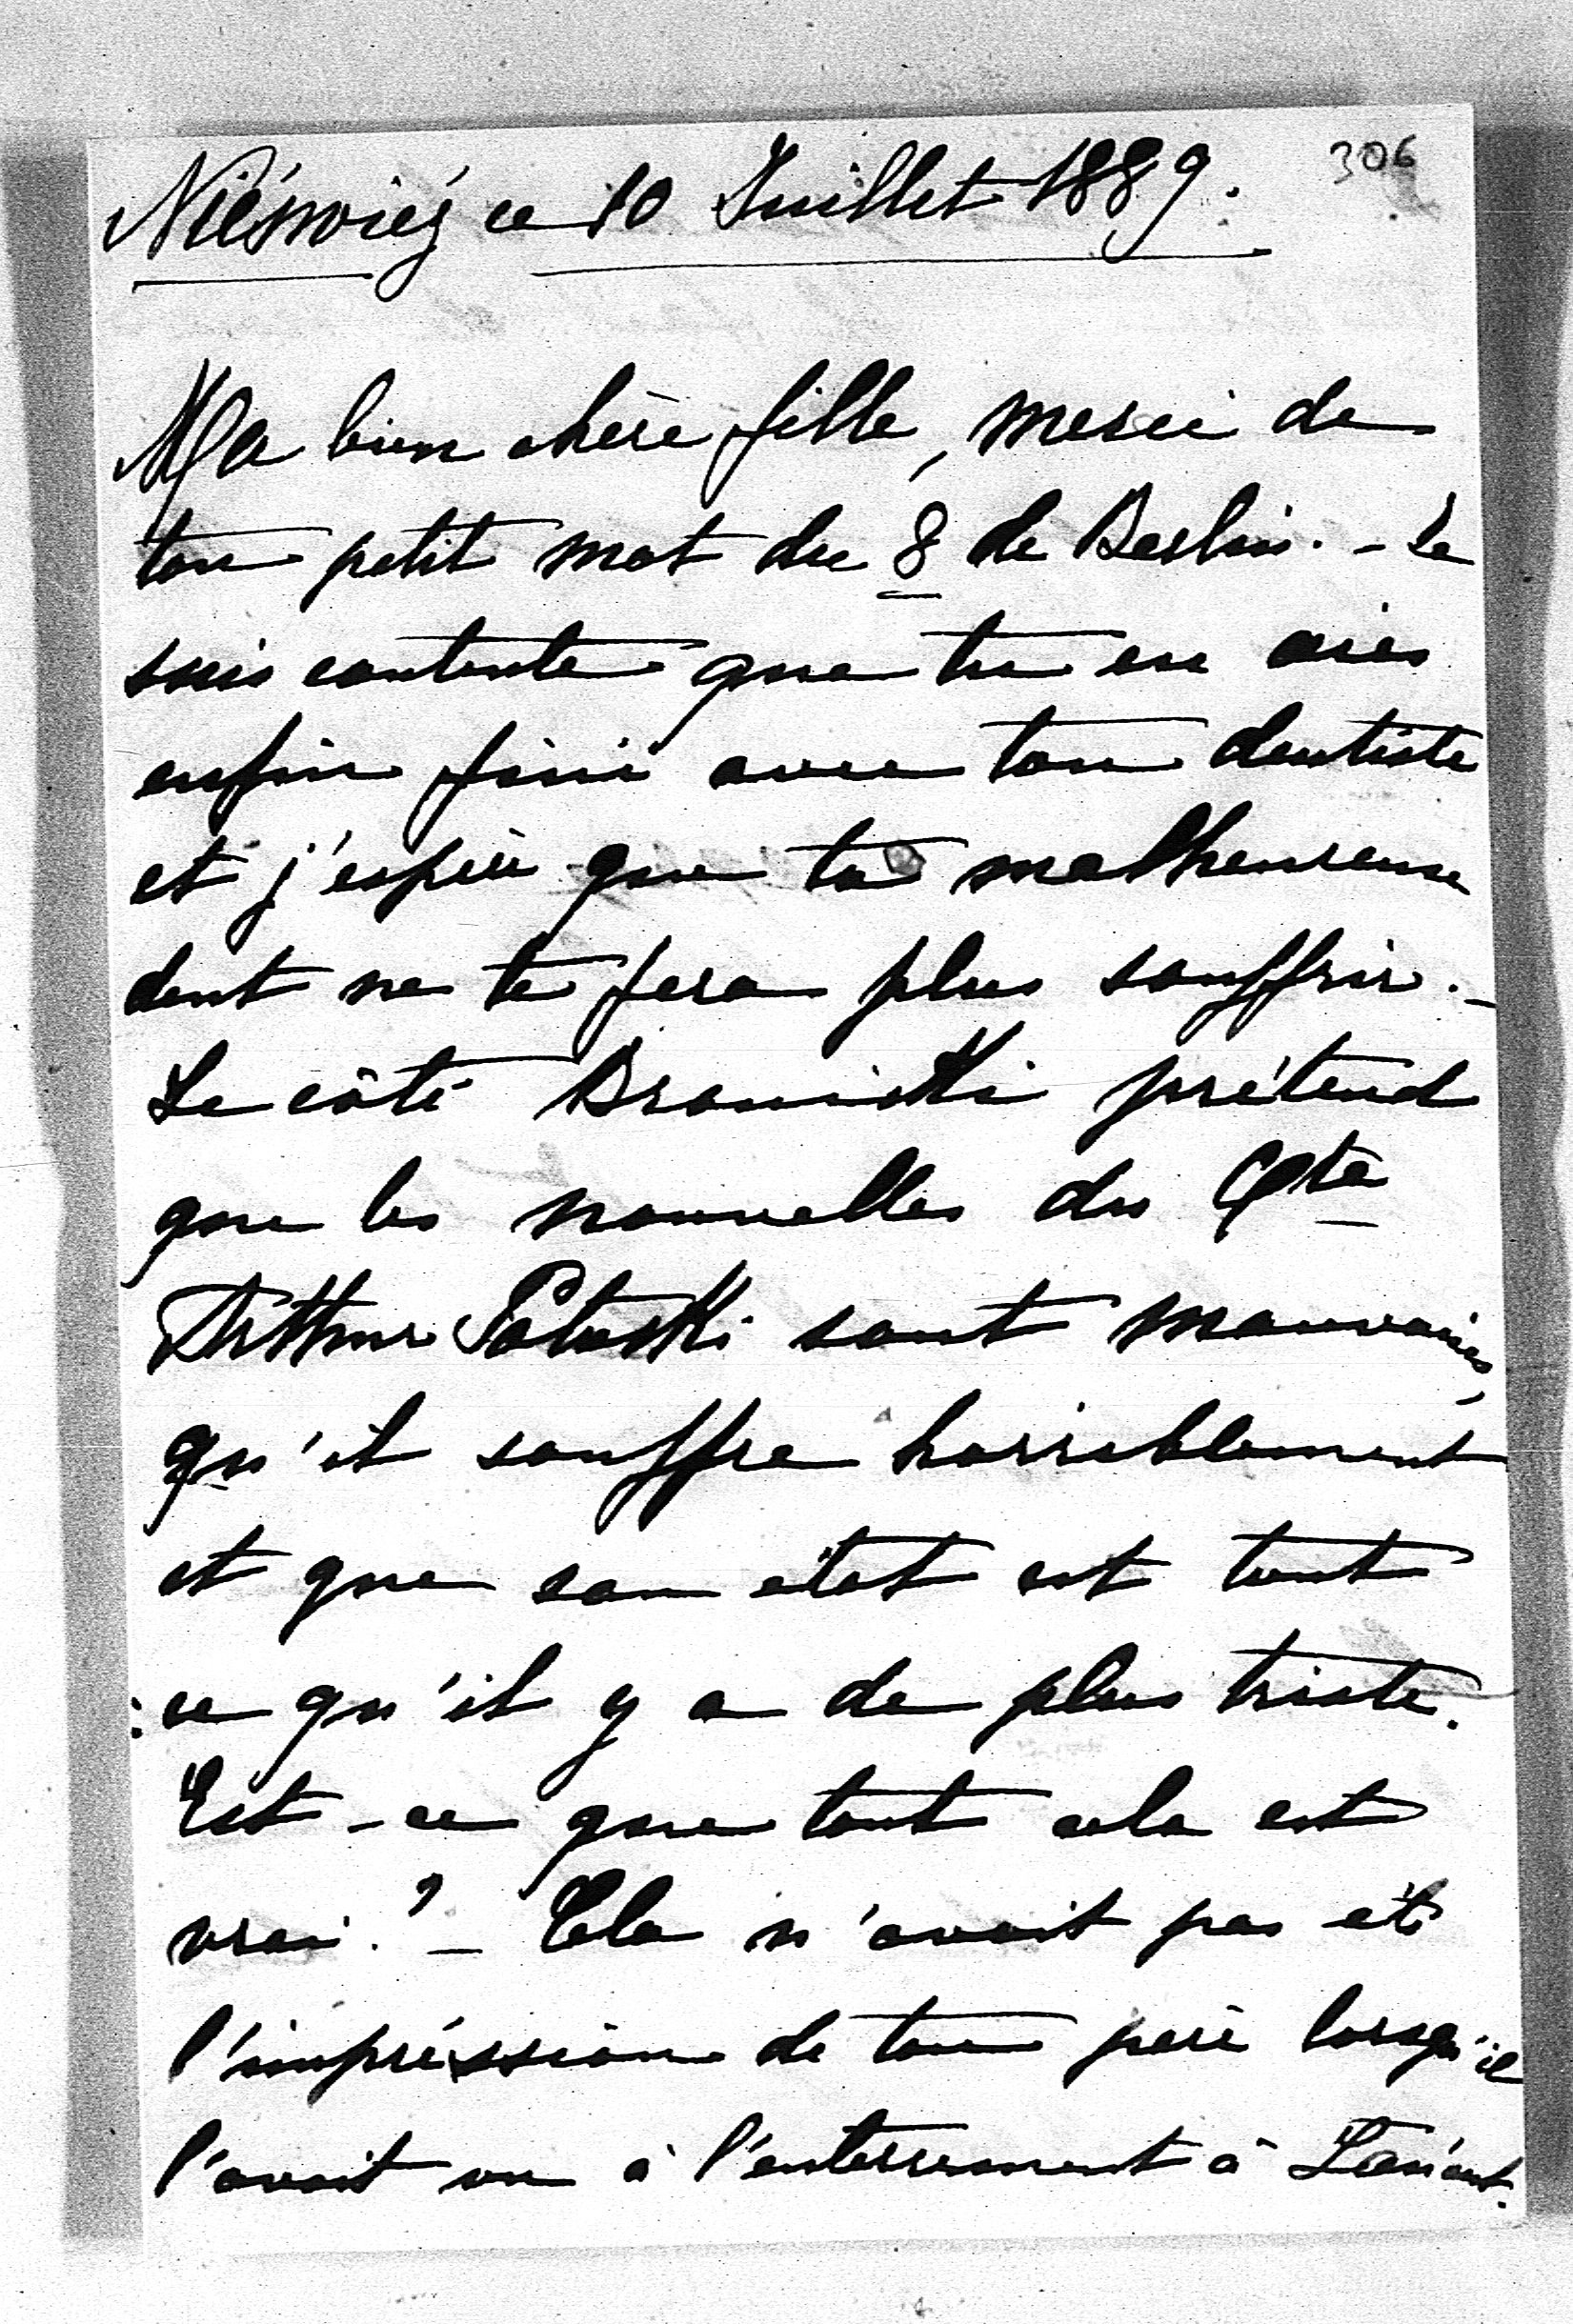 306
Niéswiéz ce 10 Juillet 1889.
Ma bien chère fille, merci de
ton petit mot du 8 de Berlin. - Je
suis contente que tu en aies
enfin fini avec ton dentiste
et j'espère que ta malheureuse
dent ne te fera plus souffrir. -
Le côté Branicki prétend
que les nouvelles du Cte
Arthur Potocki sont mauvaises,
qu'il souffre horriblement
et que son état est tout
ce qu'il y a de plus triste.
Est-ce que tout cela est
vrai? - Cela n'avait pas été
l'impréssion de ton père lorsqu'il
l'avait vu à l'enterrement à